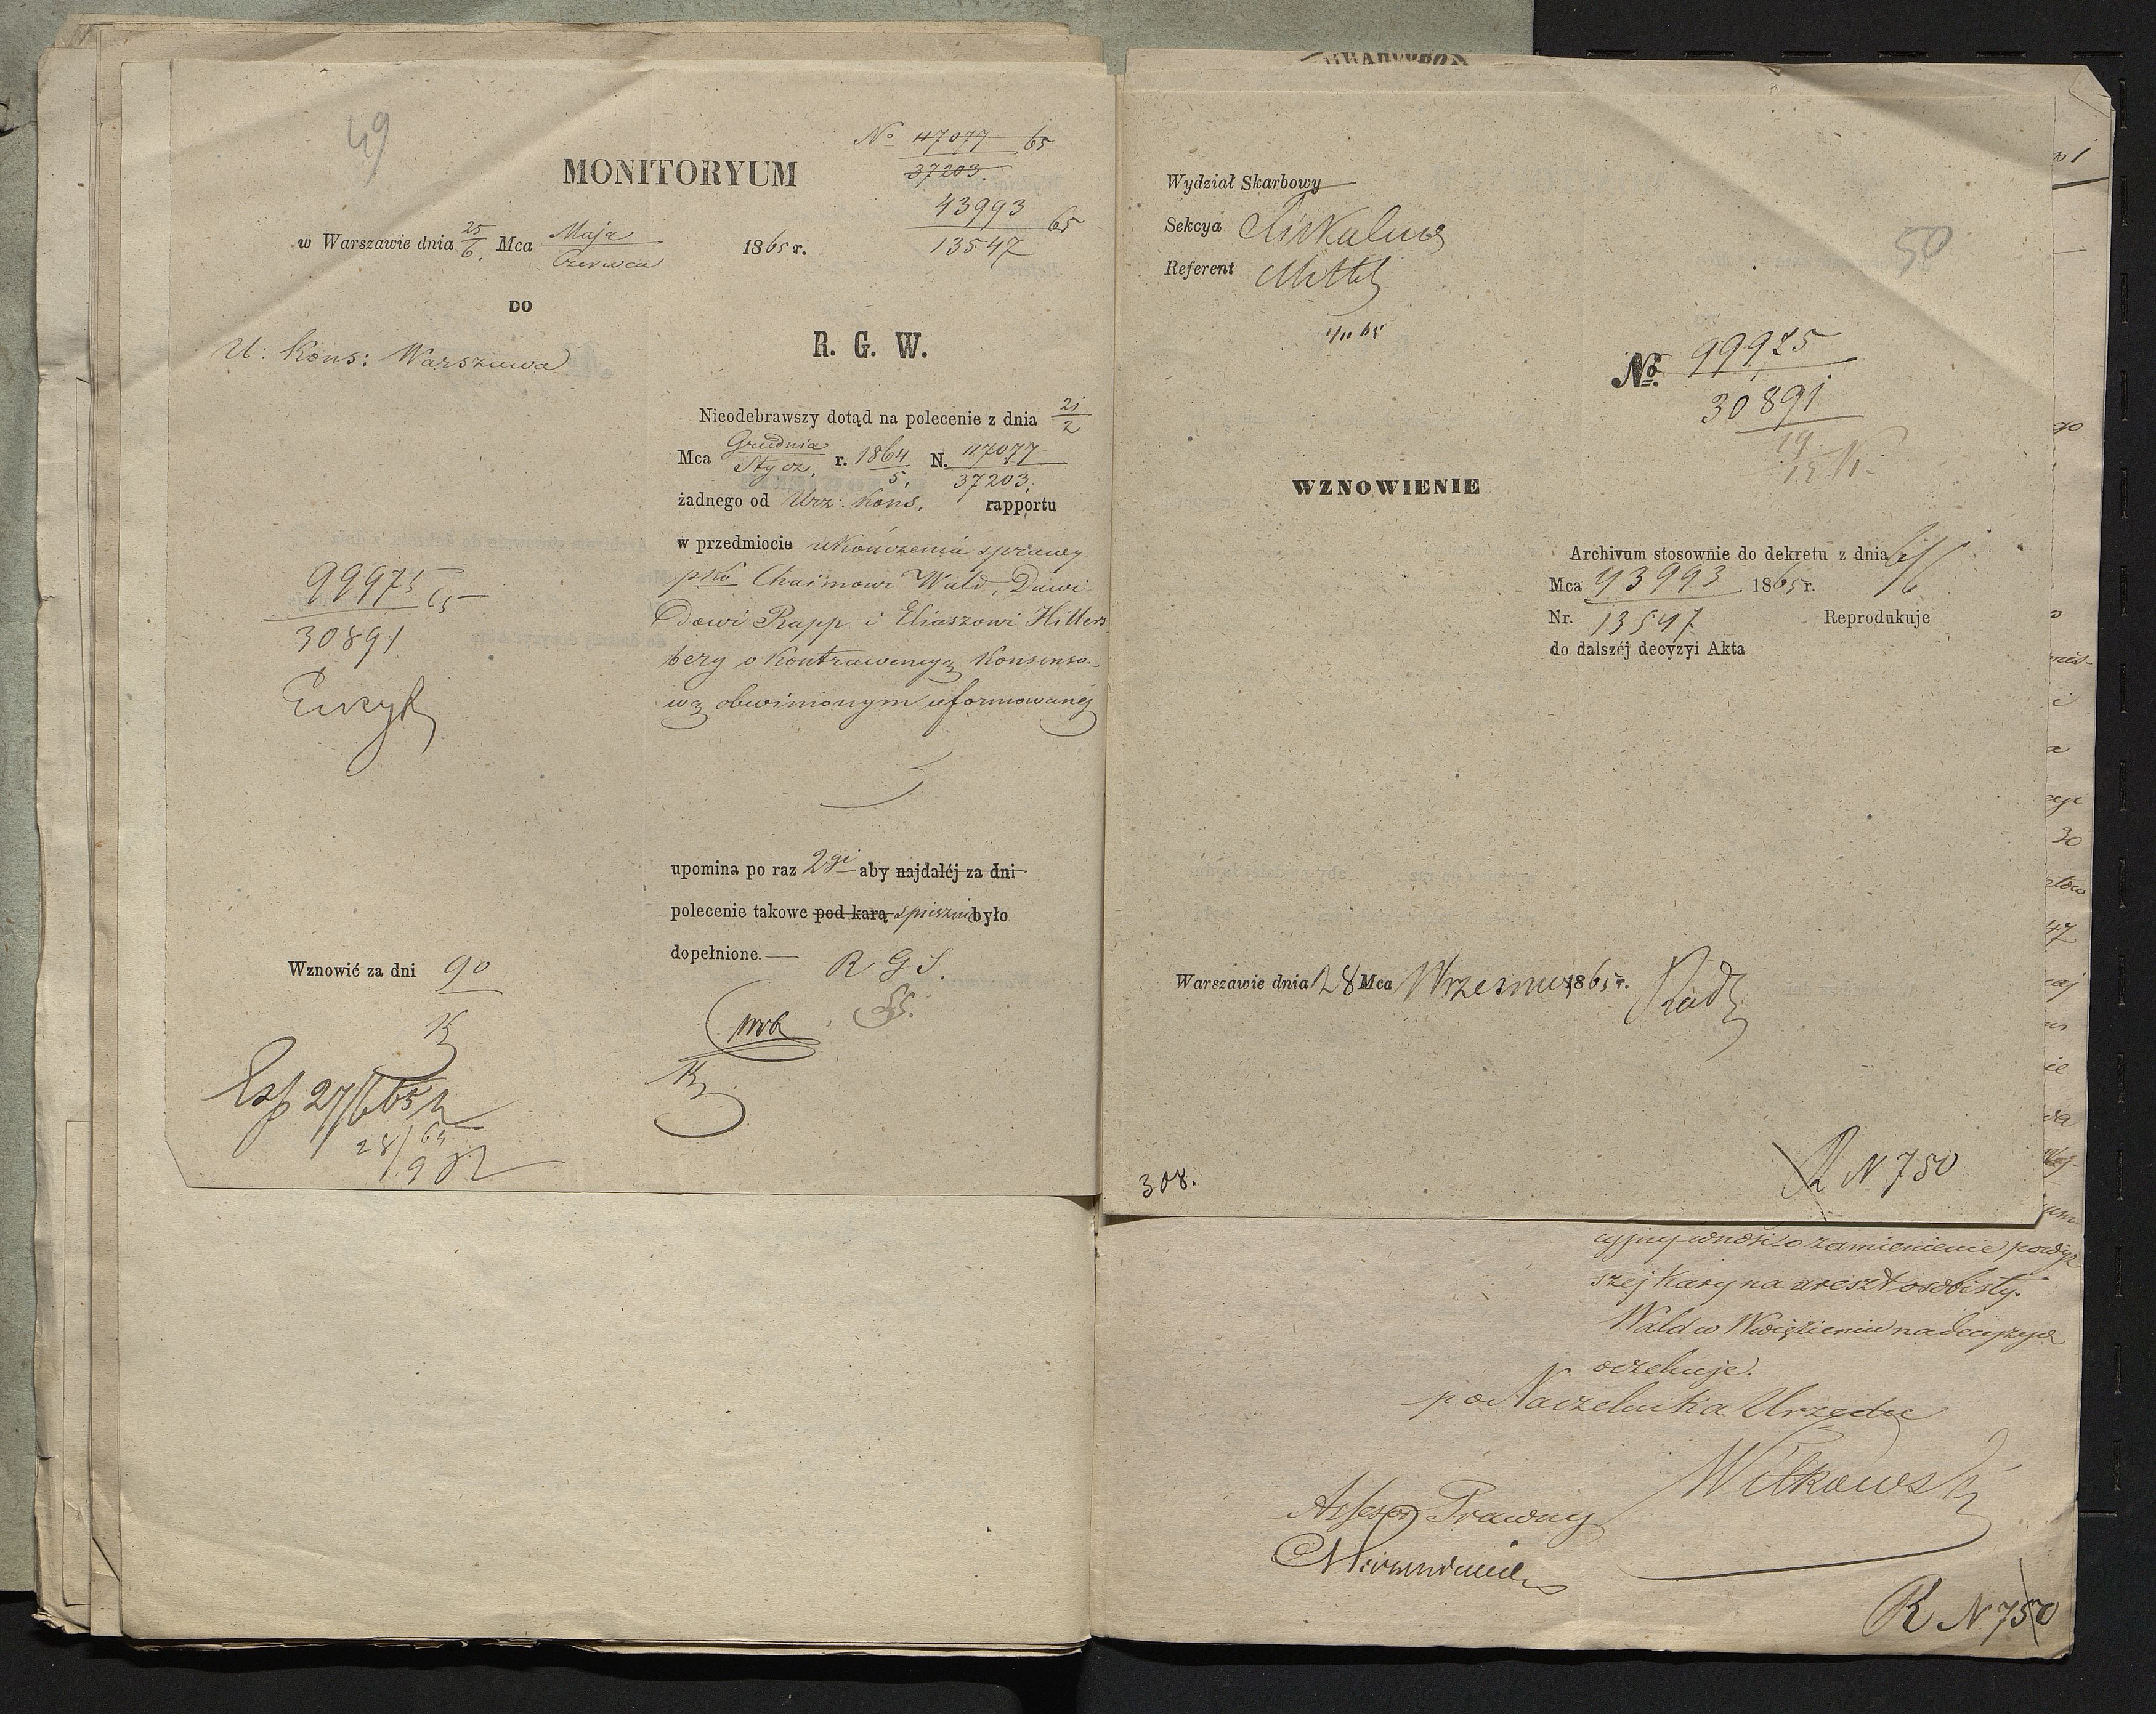 49
MONITORYUM
No 47077 65
37203.
43993 65
13547
w Warszawie dnia 25/6. Mca Maja / Czerwca 1865 r.
DO
U: Kons: Warszawa
R. G. W.
Nieodebrawszy dotąd na polecenie z dnia 21/2
Mca Grudnia / Stycz. r. 1864/5. N. 117077 / 37203.
żadnego od Urz: Kons. rapportu
w przedmiocie ukończenia sprawy
pko Chaimowi Wald, Dawi
dowi Rapp i Eliaszowi Hillers
berg o kontrawencyą konsenso-
wą obwinionym uformowanéj
99975 65
30891
upomina po raz 2gi aby najdaléj za dni
polecenie takowe pod karą spiesznie było
dopełnione.—
R G S.
Wznowić za dni 90
Exp 27/6 65
28/9 65
Wydział Skarbowy
Sekcya
Referent
50
No. 99975
30891
WZNOWIENIE
Archivum stosownie do dekretu z dnia
Mca 43993 1865 r.
Nr. 13547 Reprodukuje
do dalszéj decyzyi Akta
Warszawie dnia 28 Mca Wrzesnia 1865 r.
308.
R N 750
cyjnej wnosi o zamienienie powyż
szej kary na areszt osobisty.
Wald w Więzieniu na decyzyą
oczekuje.
po Naczelnika Urzędu
Witkowski
Assesor Prawny
R N 750